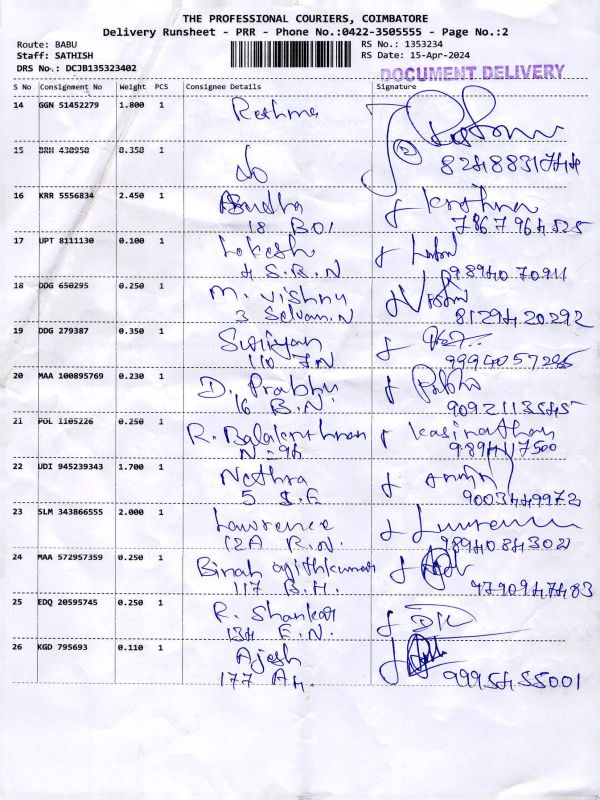 THE PROFESSIONAL COURIERS, COIMBATORE
Delivery Runsheet - PRR - Phone No.:0422-3505555 - Page No.:2
Route: BABU
RS No.: 1353234
Staff: SATHISH
RS Date: 15-Apr-2024
DRS No.: DCJB135323402
DOCUMENT DELIVERY
S No Consignment No Weight PCS Consignee Details Signature
14 GGN 51452279 1.800 1 Reshma
15 BRH 430950 0.350 1
8248831744
16 KRR 5556834 2.450 1 Krishna
18 B01 7867964525
17 UPT 8111130 0.100 1 Lokesh
4 S.B.N 9894070911
18 DDG 650295 0.250 1 M. Vishnu Vishnu
3 Selvam.N 8129420292
19 DDG 279387 0.350 1 Suriyan
110 J.N
20 MAA 100895769 0.230 1 D. Prabhu Prabhu
16 B.N.
21 POL 1105226 0.250 1 R. Balakrishnan Kasinathan
N-96
22 UDI 945239343 1.700 1 Nethra
5 S.E 9003449972
23 SLM 343866555 2.000 1 Lawrence Lawrence
12A R.N. 9894084302
24 MAA 572957359 0.250 1 Ajithkumar
117 B.H. 4790947483
25 EDQ 20595745 0.250 1 R. Shankar
134 E.N.
26 KGD 795693 0.110 1 Ajesh
177 A.H. 9995455001